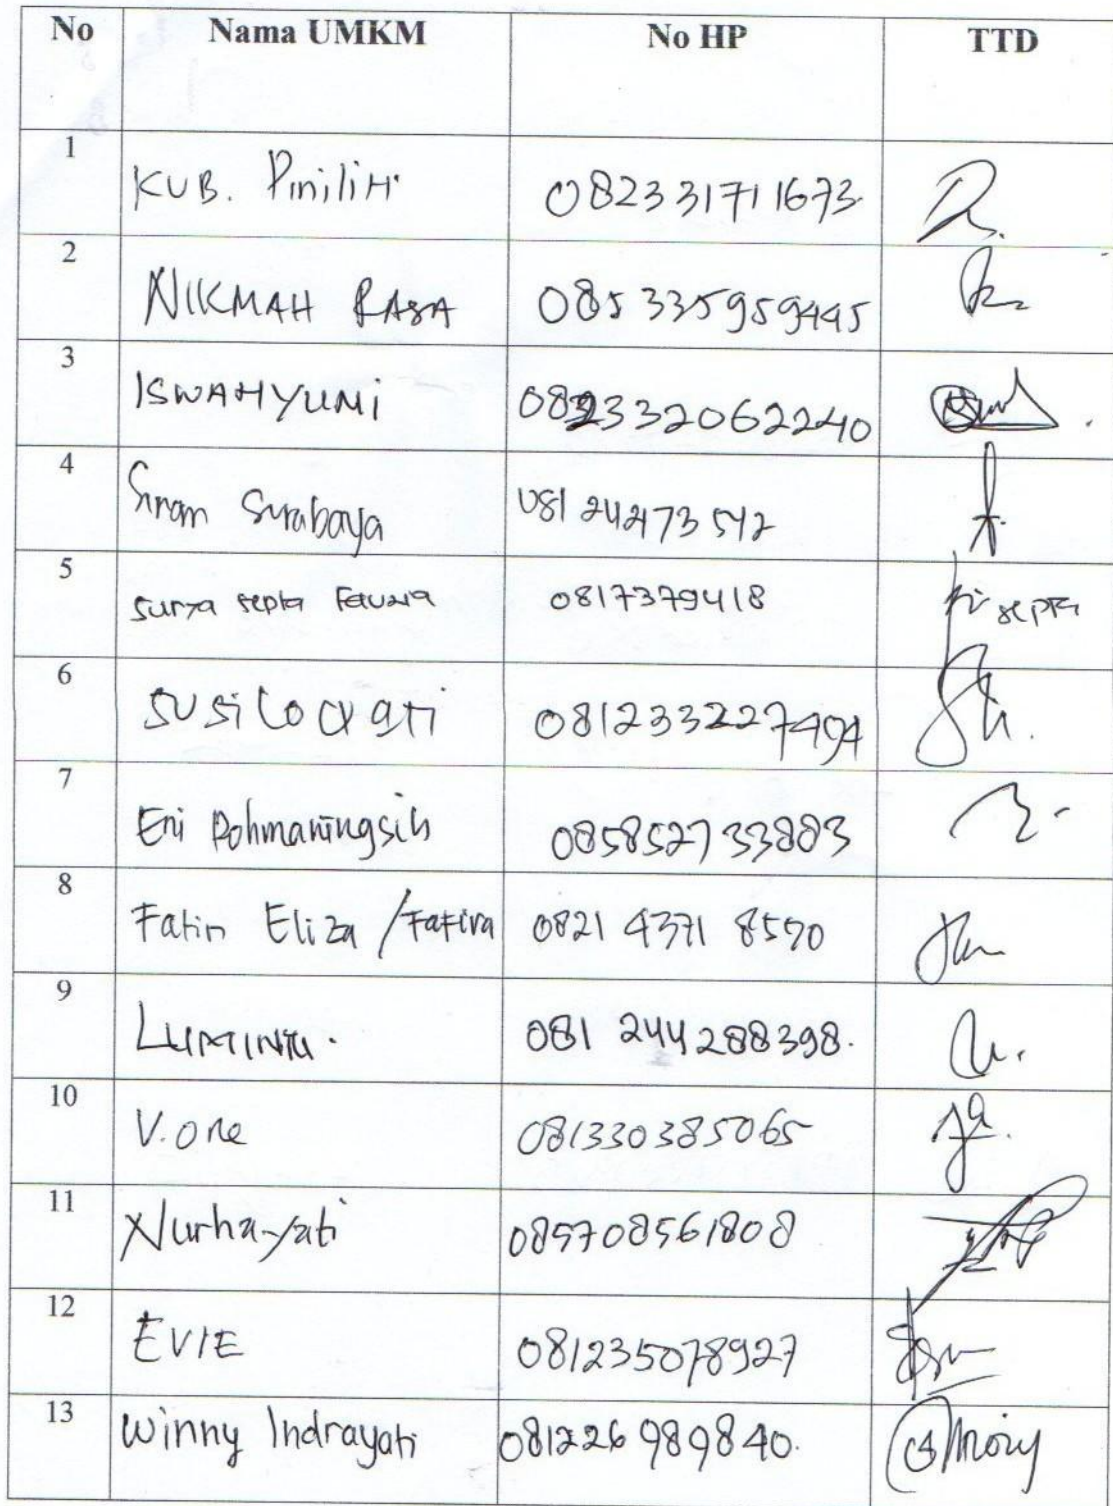 No Nama UMKM No HP TTD
1 KUB. Pinilih 082331711673.
2 NIKMAH RASA 085335959445
3 ISWAHYUNI 082332062240
4 Siram Surabaya 081242473542
5 surya septa Fauzia 0817379418 septa
6 SUSiLOWati 081233227494
7 Eni Rohmaningsih 085852733883
8 Fatin Eliza /Fatira 0821 4371 8570
9 LUMINTU. 081 244288398.
10 V.one 081330385065
11 Nurhayati 085708561808
12 EVIE 081235078927
13 Winny Indrayati 081226989840.